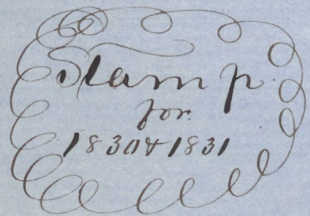 Stamp.
for
1830 & 1831